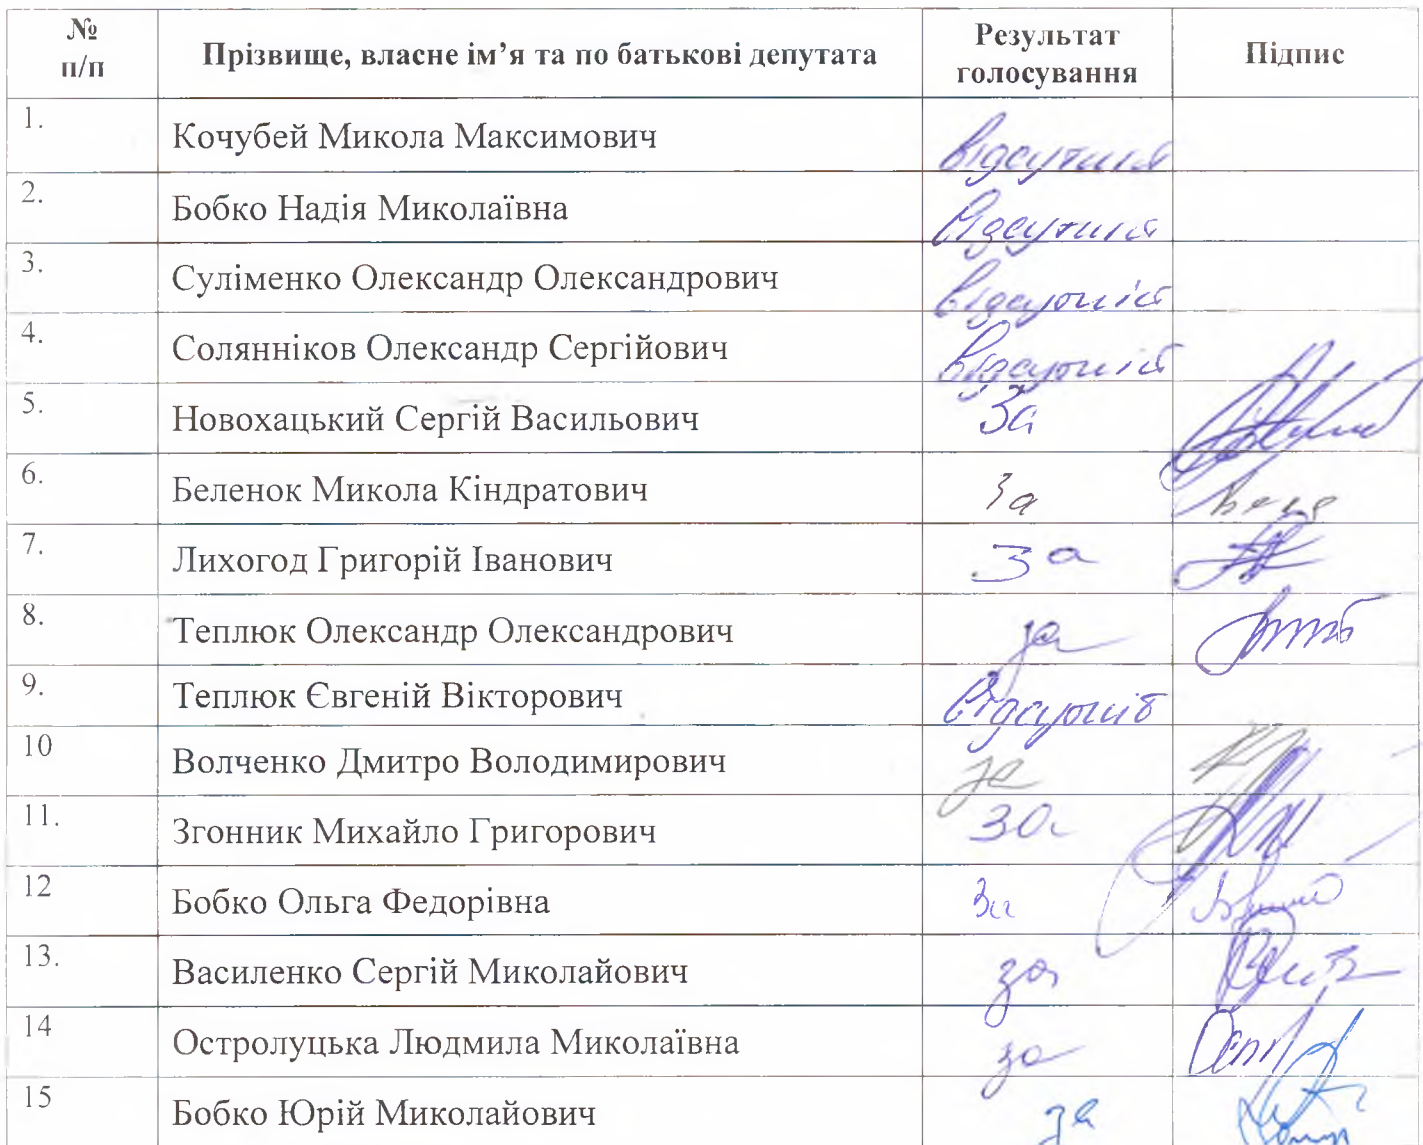 № п/п Прізвище, власне ім’я та по батькові депутата Результат голосування Підпис
1. Кочубей Микола Максимович відсутній
2. Бобко Надія Миколаївна відсутня
3. Суліменко Олександр Олександрович відсутній
4. Солянніков Олександр Сергійович відсутній
5. Новохацький Сергій Васильович За
6. Беленок Микола Кіндратович За
7. Лихогод Григорій Іванович За
8. Теплюк Олександр Олександрович за
9. Теплюк Євгеній Вікторович відсутній
10 Волченко Дмитро Володимирович за
11. Згонник Михайло Григорович За
12 Бобко Ольга Федорівна За
13. Василенко Сергій Миколайович за
14 Остролуцька Людмила Миколаївна за
15 Бобко Юрій Миколайович за